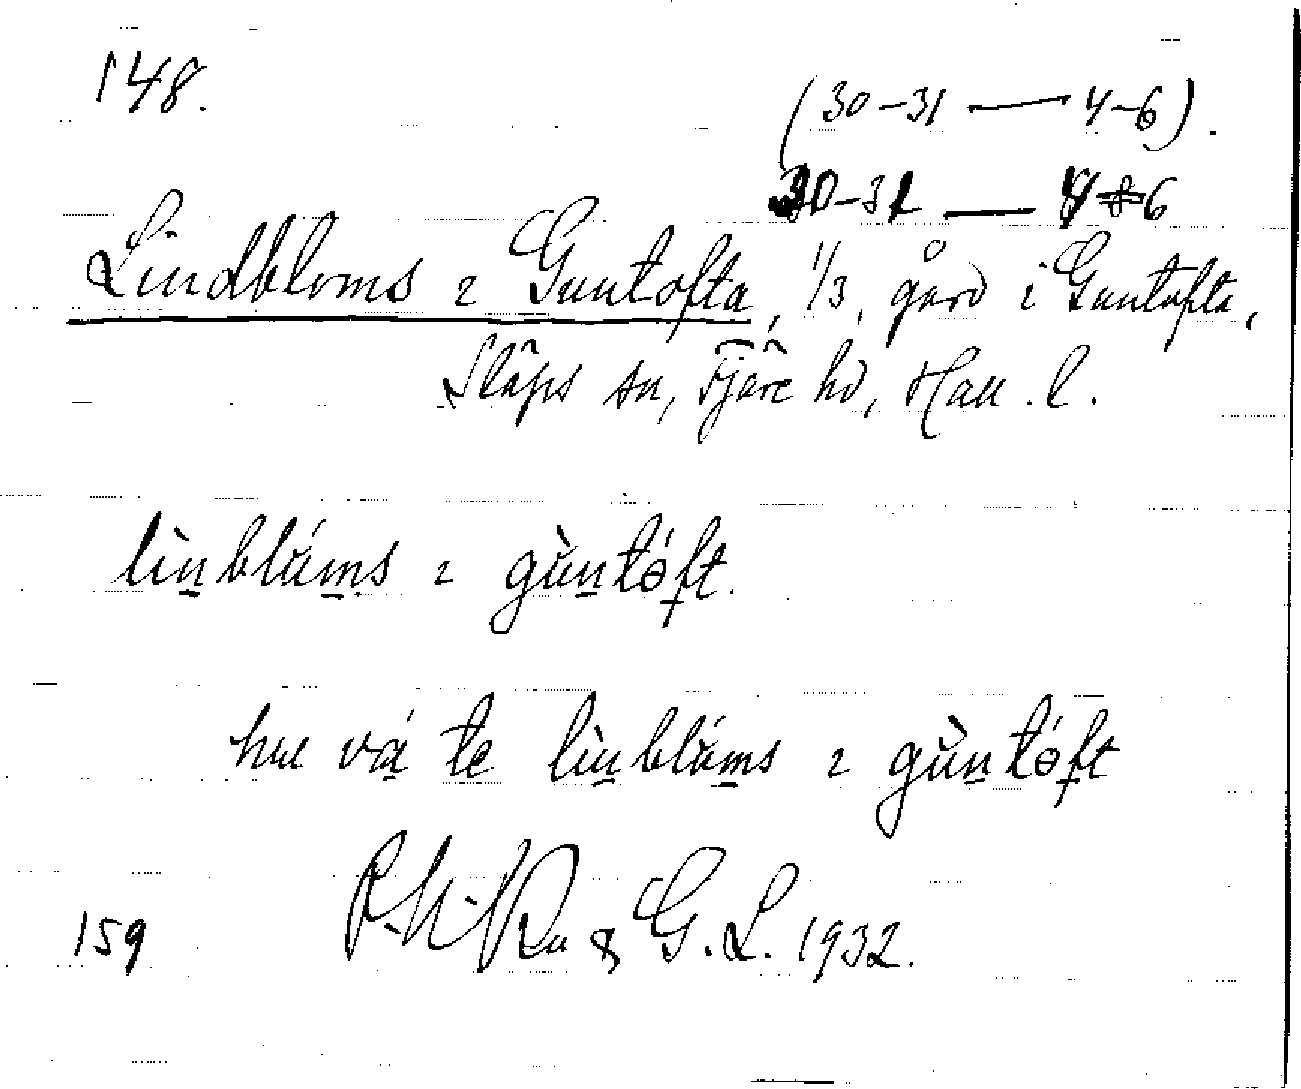 148.
(30-31 — 4-6).
30-31 — 4-6
Lindbloms i Guntofta, 1/3, gård i Guntofta,
Släps sn, Fjäre hd, Hall. l.
lìnblúms ı gùntóft.
hu vá te lìnblúms ı gùntóft
& G. L. 1932.
159